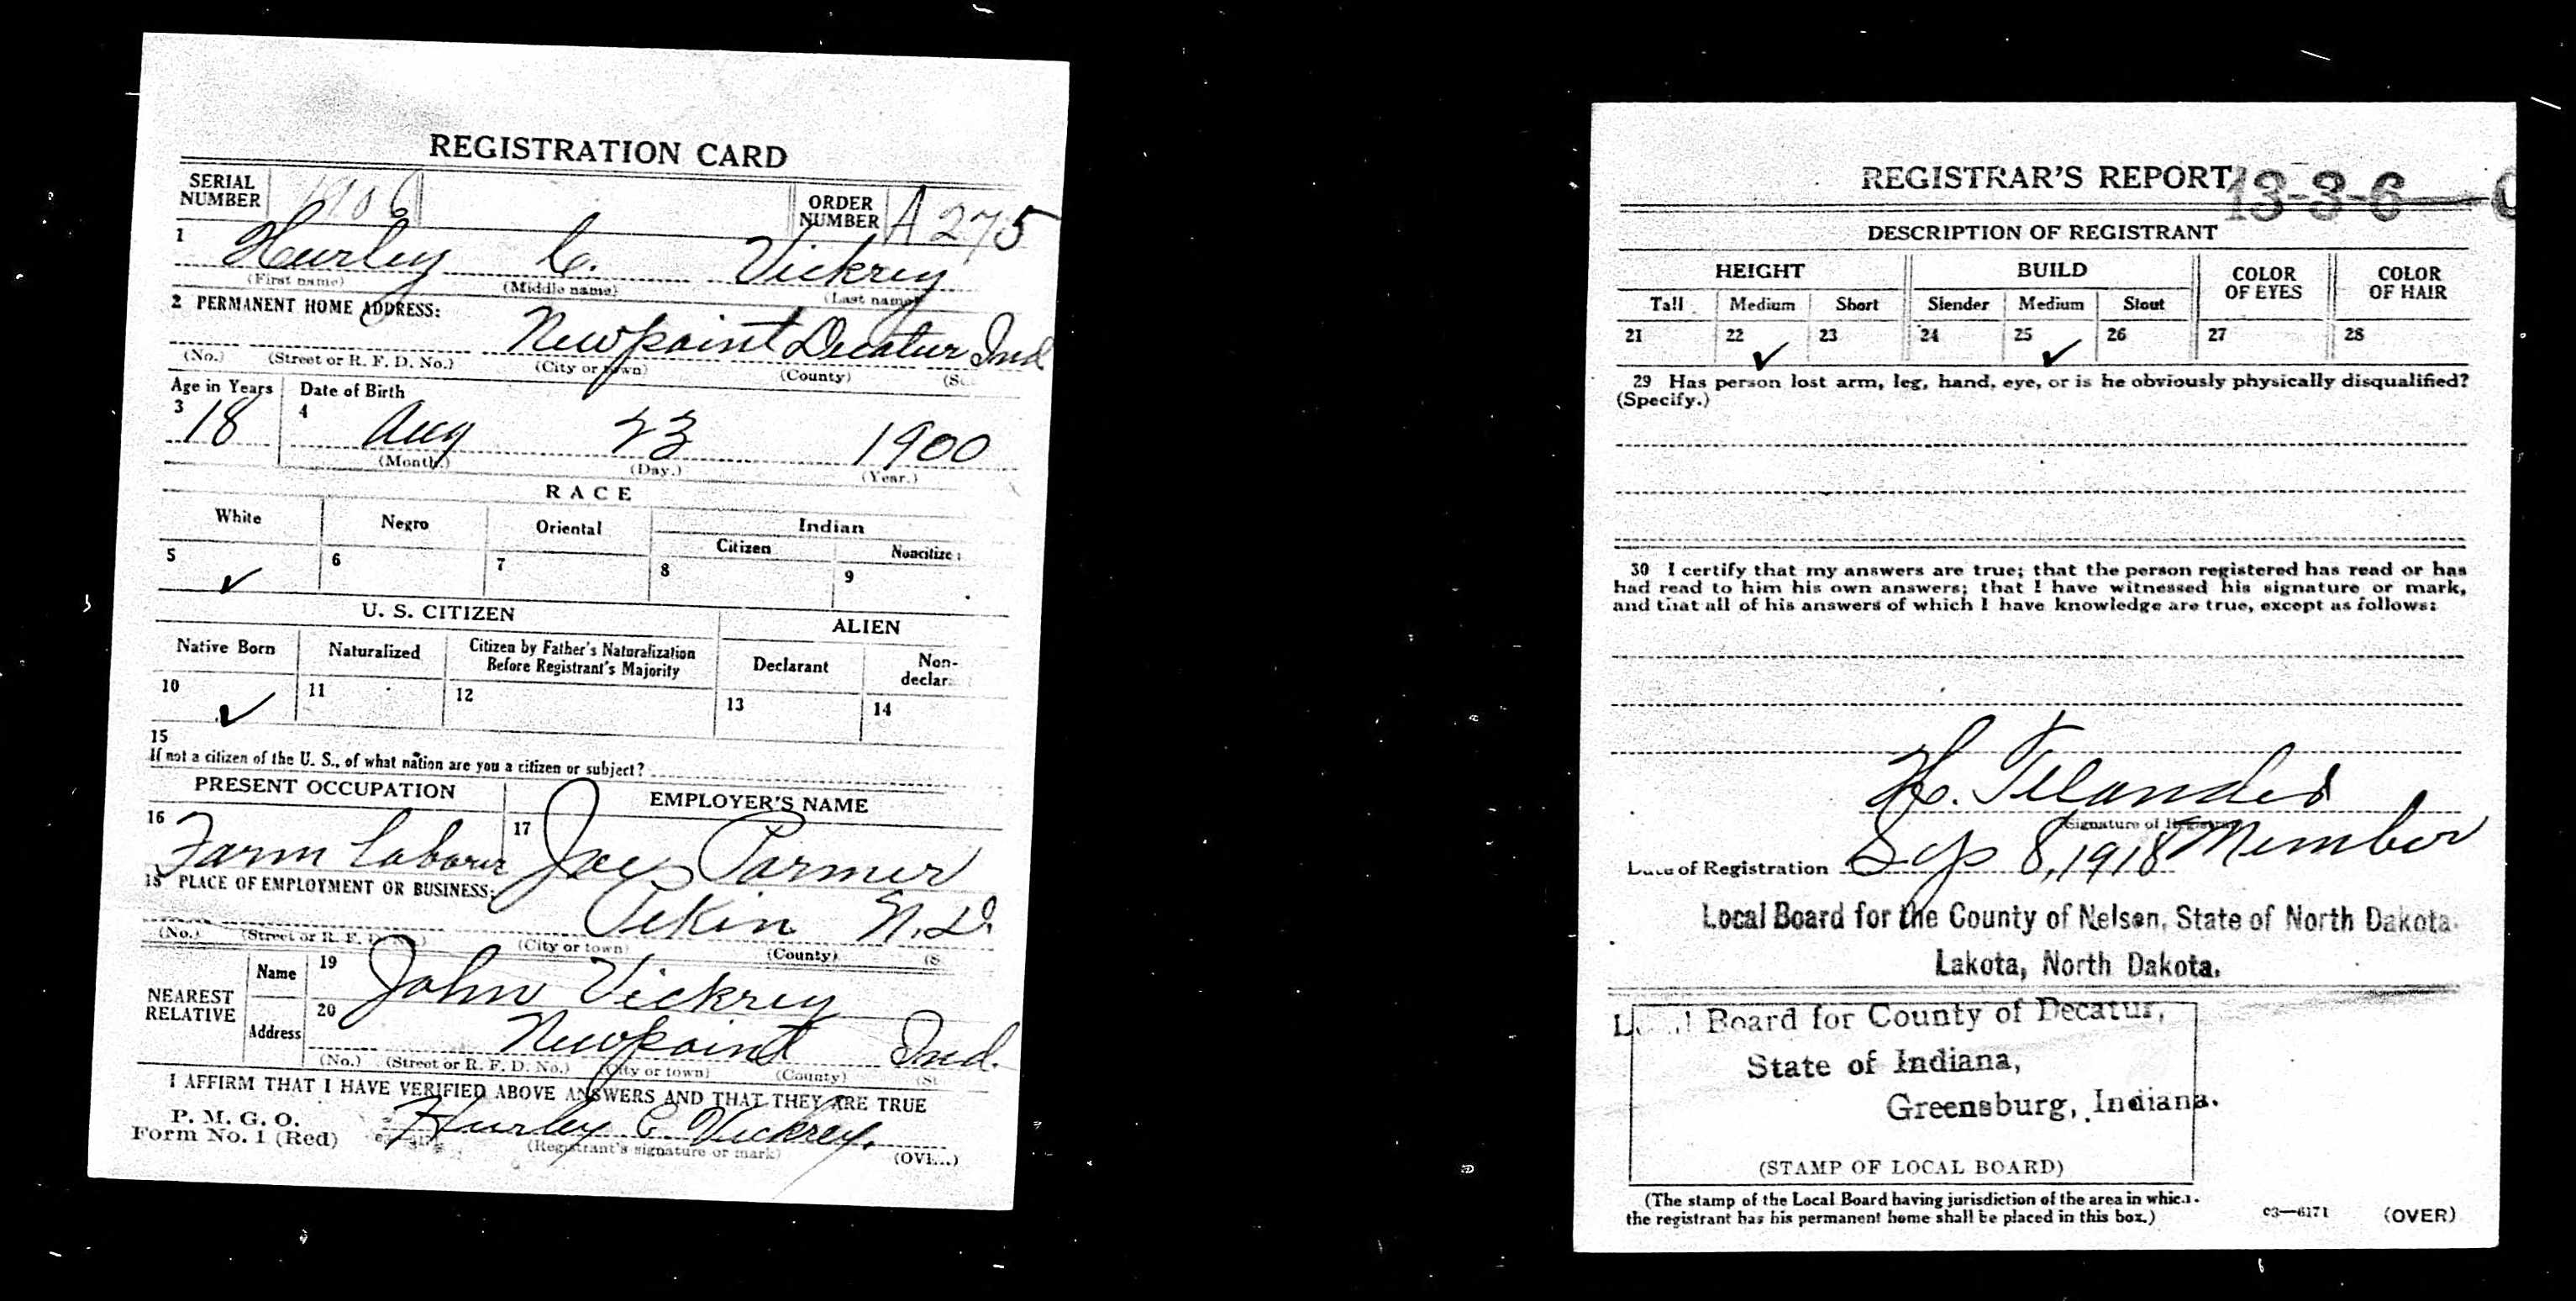 REGISTRATION CARD
SERIAL NUMBER 1906 ORDER NUMBER A 275
1 Hurley C. Vickrey
(First name) (Middle name) (Last name)
2 PERMANENT HOME ADDRESS:
Newpoint Decatur Ind
(No.) (Street or R. F. D. No.) (City or town) (County)
Age in Years Date of Birth
3 18 4 Aug 23 1900
(Month.) (Day.) (Year.)
RACE
White Negro Oriental Indian
Citizen Noncitize
5 ✓ 6 7 8 9
U. S. CITIZEN ALIEN
Native Born Naturalized Citizen by Father's Naturalization Before Registrant's Majority Declarant Non-declar
10 ✓ 11 12 13 14
15
If not a citizen of the U. S., of what nation are you a citizen or subject?
PRESENT OCCUPATION EMPLOYER'S NAME
16 Farm Laborer 17 Joe Parmer
18 PLACE OF EMPLOYMENT OR BUSINESS:
Pekin N.D.
(No.) (Street or R. F. D. No.) (City or town) (County)
NEAREST RELATIVE
Name 19 John Vickrey
Address 20 Newpoint Ind.
(No.) (Street or R. F. D. No.) (City or town) (County)
I AFFIRM THAT I HAVE VERIFIED ABOVE ANSWERS AND THAT THEY ARE TRUE
P. M. G. O.
Form No. 1 (Red) Hurley C. Vickrey.
(Registrant's signature or mark)
REGISTRAR'S REPORT 13-3-6
DESCRIPTION OF REGISTRANT
HEIGHT BUILD COLOR OF EYES COLOR OF HAIR
Tall Medium Short Slender Medium Stout
21 22 ✓ 23 24 25 ✓ 26 27 28
29 Has person lost arm, leg, hand, eye, or is he obviously physically disqualified?
(Specify.)
30 I certify that my answers are true; that the person registered has read or has
had read to him his own answers; that I have witnessed his signature or mark,
and that all of his answers of which I have knowledge are true, except as follows:
H.
(Signature of Registrar)
Date of Registration Sep 8, 1918 Member
Local Board for the County of Nelson, State of North Dakota.
Lakota, North Dakota.
Local Board for County of Decatur,
State of Indiana,
Greensburg, Indiana.
(STAMP OF LOCAL BOARD)
(The stamp of the Local Board having jurisdiction of the area in which
the registrant has his permanent home shall be placed in this box.)
c3—6171 (OVER)